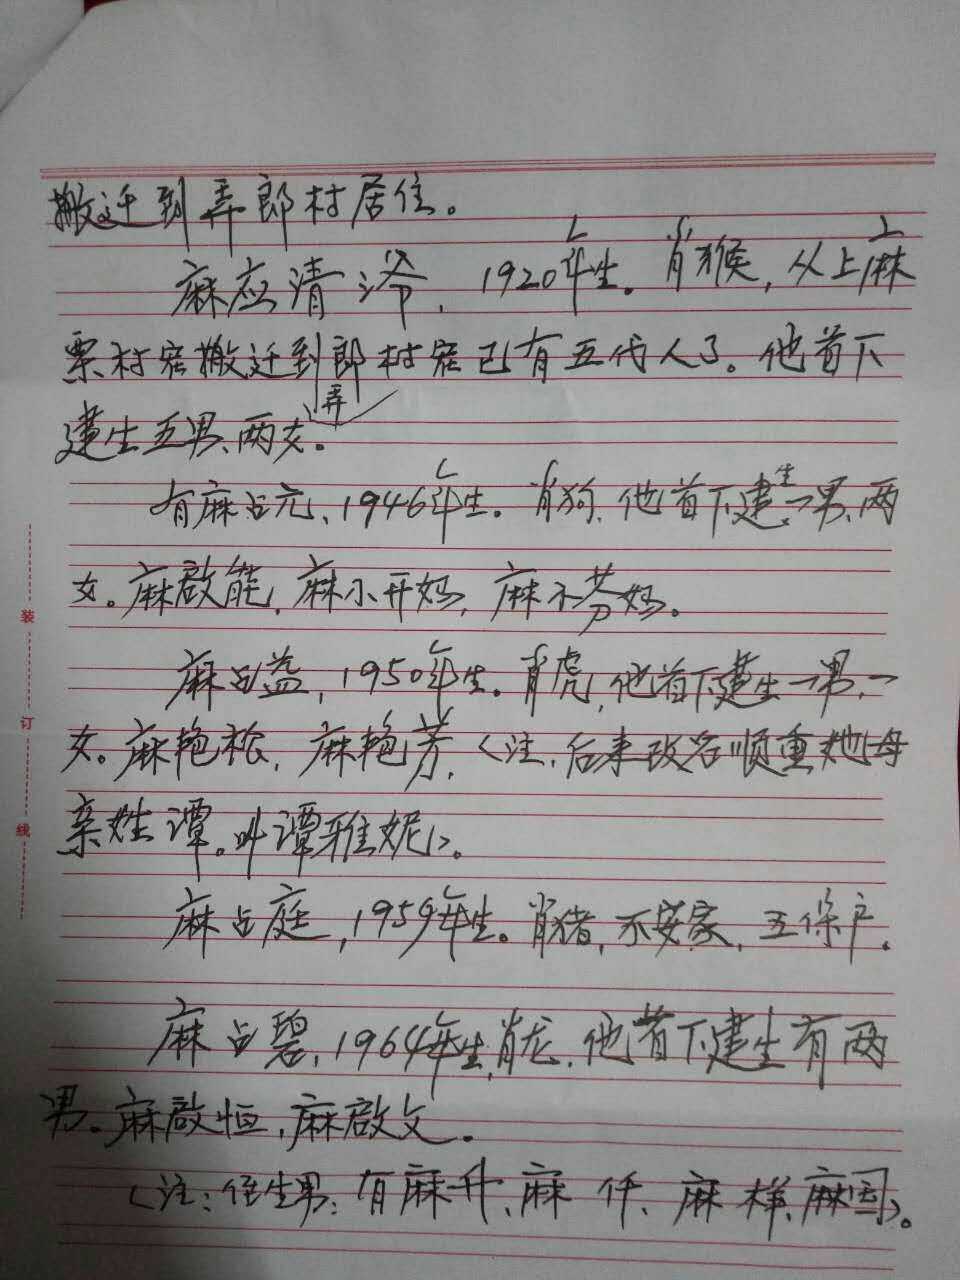 搬迁到弄郎村居住。
麻应清爷，1920年生。肖猴，从上麻
票村宏搬迁到弄郎村宏已有五代人了。他首下
建生五男、两女。
有麻占元、1946年生。肖狗，他首下建生一男、两
女。麻啟能，麻小开妈，麻不芬妈。
麻占益，1950年生。肖虎，他首下建生一男、一
女。麻艳松，麻艳芳，〈注，后来改名顺重她母
亲姓谭。叫谭雅妮〉。
麻占庭，1959年生。肖猪，不安家，五保户。
麻占碧，1964年生，肖龙，他首下建生有两
男。麻啟恒，麻啟文。
〈注：侄生男：有麻升、麻仟、麻样、麻图〉。
装
订
线